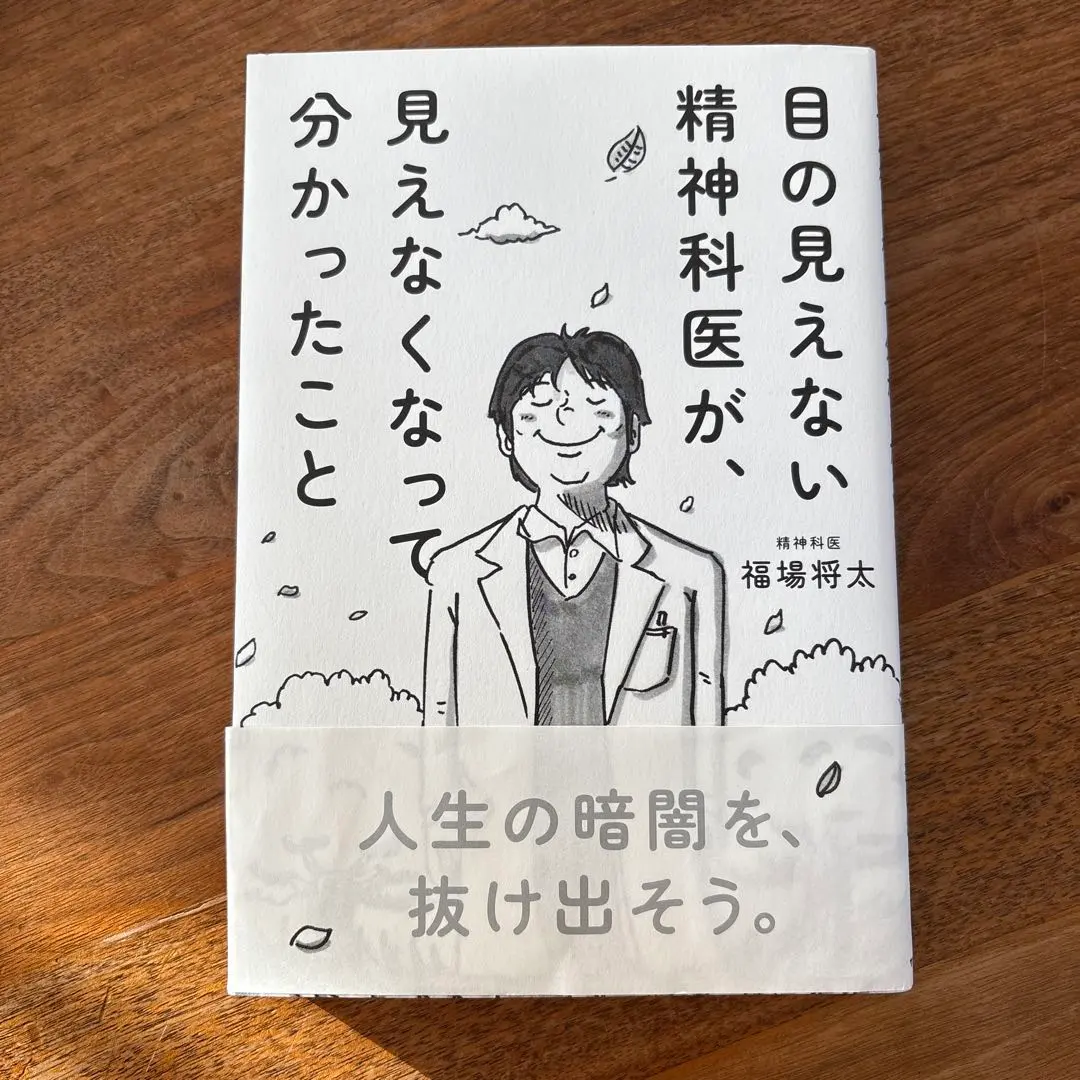 目の見えない
精神科医が、
見えなくなって
分かったこと
精神科医
福場将太
人生の暗闇を、
抜け出そう。